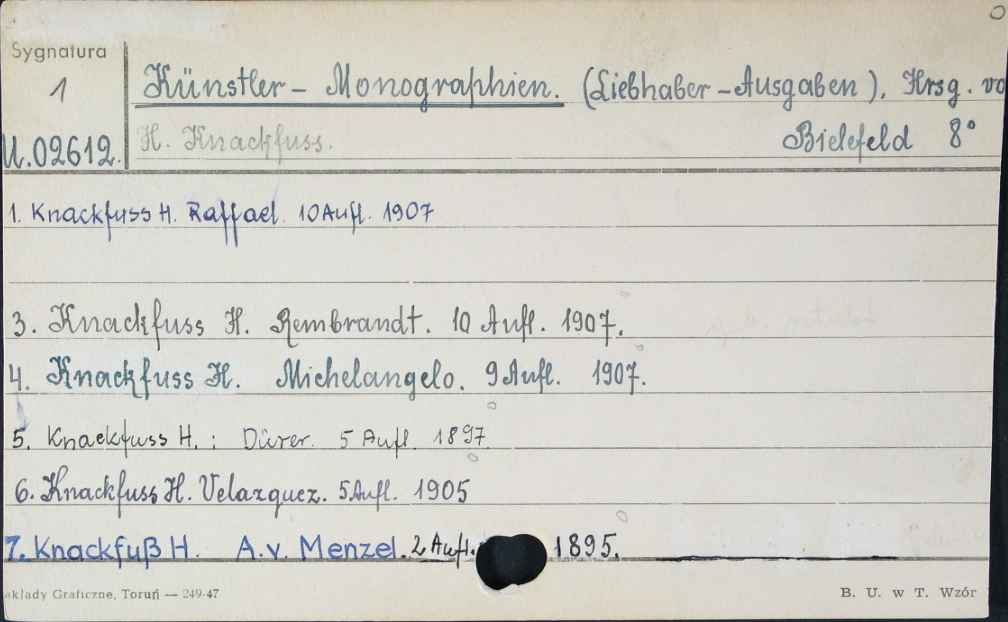 Sygnatura
1
U.02612.
Künstler – Monographien. (Liebhaber – Ausgaben). Hrsg. vo
H. Knackfuss. Bielefeld 8°
1. Knackfuss H. Raffael. 10 Aufl. 1907
3. Knackfuss H. Rembrandt. 10 Aufl. 1907.
4. Knackfuss H. Michelangelo. 9 Aufl. 1907.
5. Knackfuss H.: Dürer. 5 Aufl. 1897.
6. Knackfuss H. Velazquez. 5 Aufl. 1905
7. Knackfuß H. A. v. Menzel. 2 Aufl. 1895.
akłady Graficzne, Toruń — 249-47
B. U. w T. Wzór